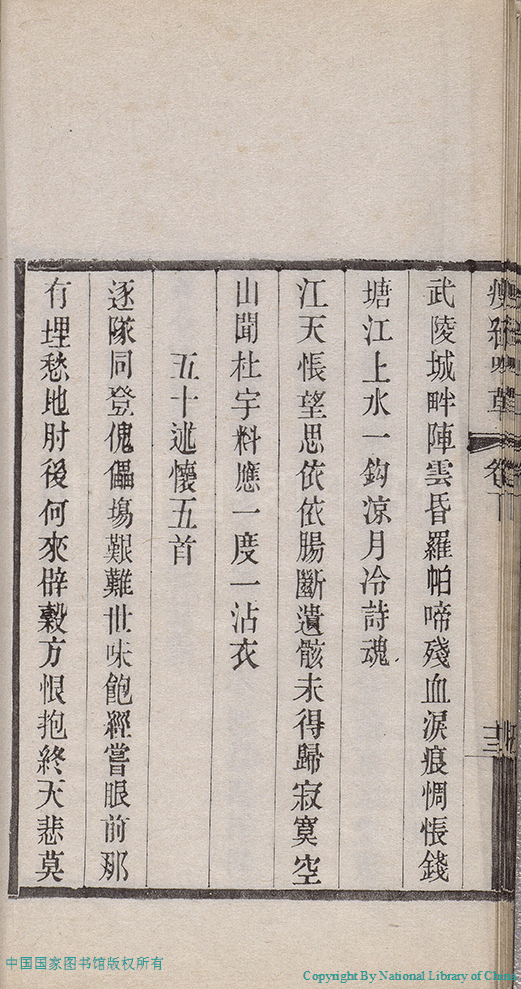 武陵城畔陣雲昏羅帕啼殘血淚痕惆悵錢
塘江上水一鈎涼月冷詩魂
江天悵望思依依腸斷遺骸未得歸寂寞空
山聞杜宇料應一度一沾衣
五十述懷五首
逐隊同登傀儡場艱難世味飽經嘗眼前那
有埋愁地肘後何來辟穀方恨抱終天悲莫
中国国家图书馆版权所有
Copyright By National Library of China